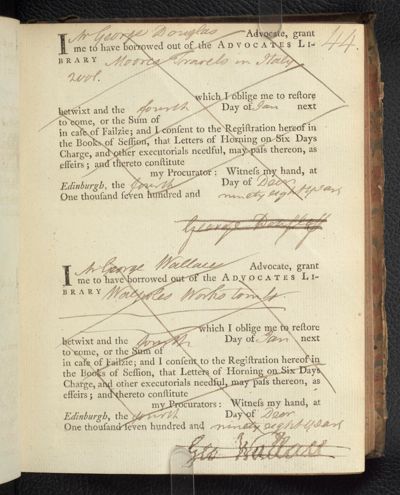 44.
I Mr George Douglas Advocate, grant
me to have borrowed out of the ADVOCATES LI-
BRARY Moores Travels in Italy
2vol.
which I oblige me to reſtore
betwixt and the fourth Day of Jan next
to come, or the Sum of
in caſe of Failzie; and I conſent to the Regiſtration hereof in
the Books of Seſſion, that Letters of Horning on Six Days
Charge, and other executorials needful, may paſs thereon, as
effeirs; and thereto conſtitute
my Procurator: Witneſs my hand, at
Edinburgh, the fourth Day of Decr
One thouſand ſeven hundred and ninety eight years
George Douglas
I Mr George Wallace Advocate, grant
me to have borrowed out of the ADVOCATES LI-
BRARY Walpoles Works
which I oblige me to reſtore
betwixt and the fourth Day of Jan next
to come, or the Sum of
in caſe of Failzie; and I conſent to the Regiſtration hereof in
the Books of Seſſion, that Letters of Horning on Six Days
Charge, and other executorials needful, may paſs thereon, as
effeirs; and thereto conſtitute
my Procurators: Witneſs my hand, at
Edinburgh, the fourth Day of Decr
One thouſand ſeven hundred and ninety eight years
Geo Wallace